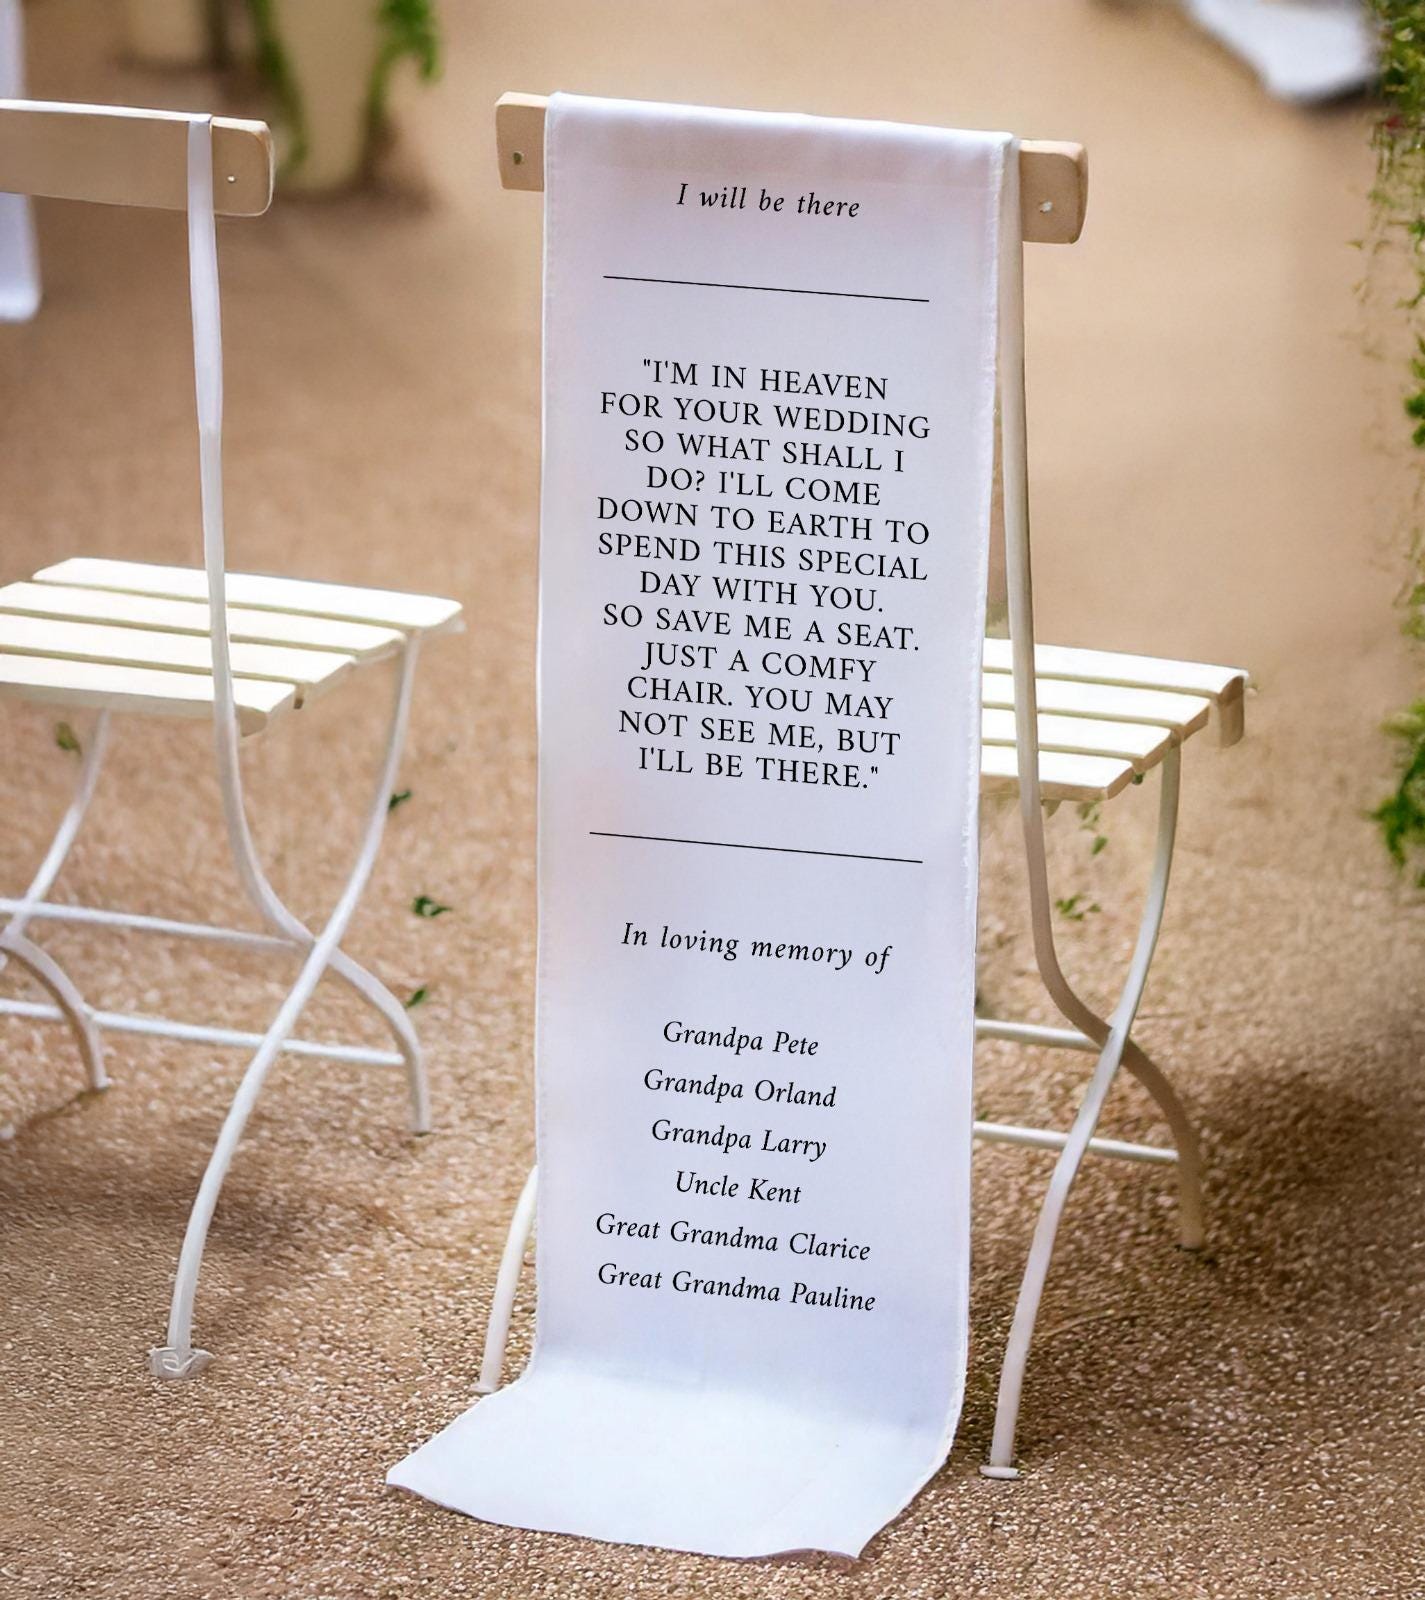 I will be there
"I'M IN HEAVEN
FOR YOUR WEDDING
SO WHAT SHALL I
DO? I'LL COME
DOWN TO EARTH TO
SPEND THIS SPECIAL
DAY WITH YOU.
SO SAVE ME A SEAT.
JUST A COMFY
CHAIR. YOU MAY
NOT SEE ME, BUT
I'LL BE THERE."
In loving memory of
Grandpa Pete
Grandpa Orland
Grandpa Larry
Uncle Kent
Great Grandma Clarice
Great Grandma Pauline